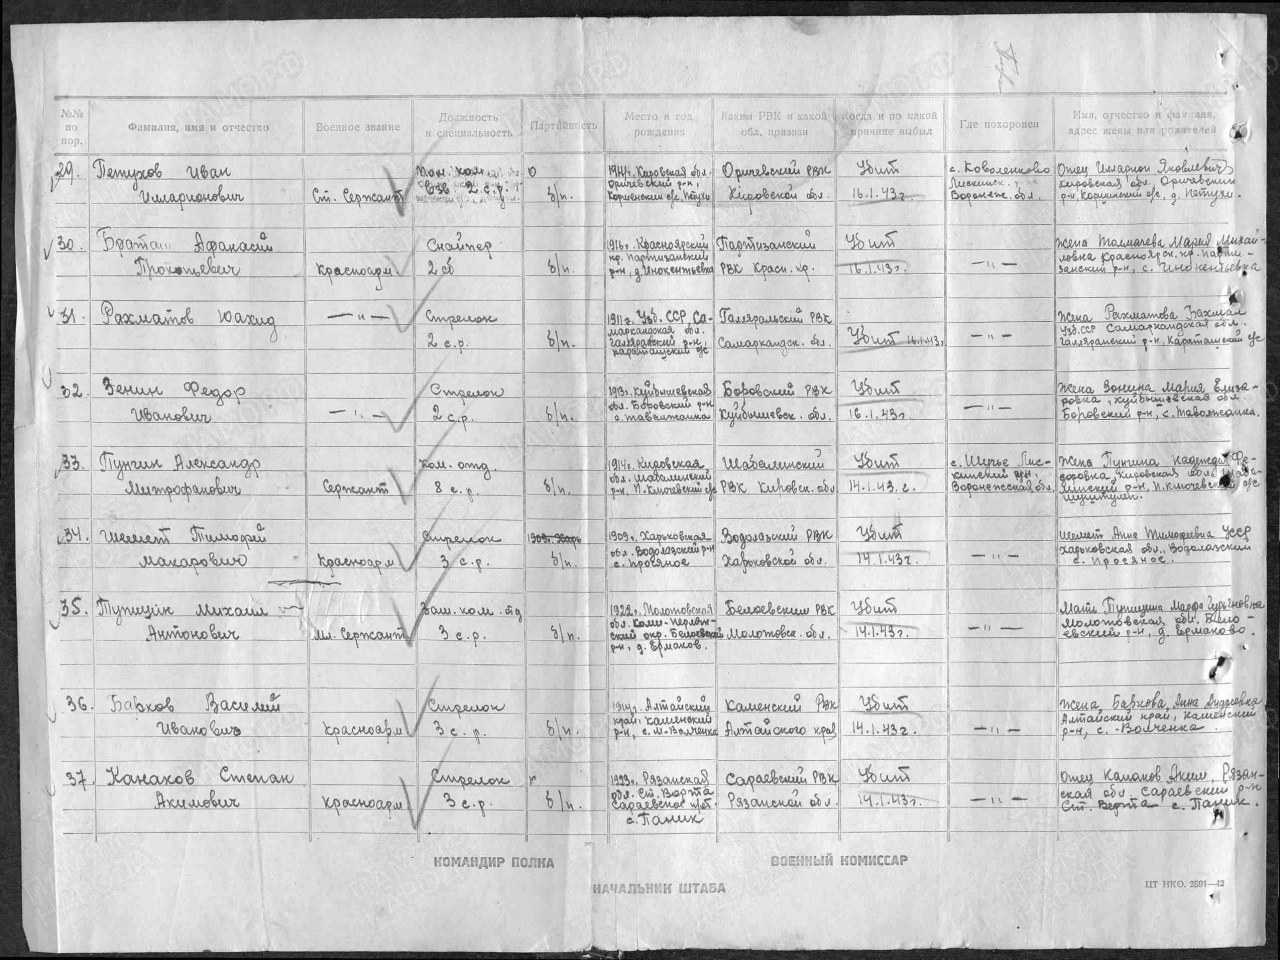 №№ по пор.
Фамилия, имя и отчество
Военное звание
Должность и специальность
Партийность
Место и год рождения
Каким РВК и какой обл. призван
Когда и по какой причине выбыл
Где похоронен
Имя, отчество и фамилия, адрес жены или родителей
29. Петухов Иван
Илларионович
Ст. Сержант
Пом. ком.
взв 2 с.р.
б/п.
1914г. Кировская обл.
Оричевский р-н,
Оричевский РВК
Кировской обл.
Убит
16.1.43г.
с. Коваленково
Лискинск.
Воронеж. обл.
Отец Иларион Яковлевич
Кировская обл. Оричевский
30. Афанасий
Прокопьевич
Красноарм
Снайпер
2 сб
б/п.
1916г. Красноярский
кр. Партизанский
р-н, д. Инокентьевка
Партизанский
РВК Красн. кр.
Убит
16.1.43г.
— „ —
Жена Толмачева Мария Михай-
ловна Красноярск. кр. Парти-
занский р-н, с. Инокентьевка
31. Рахматов Юахид
— „ —
Стрелок
2 с.р.
б/п.
1911г. Узб. ССР, Са-
маркандская обл.
Галляральский РВК
Самаркандск. обл.
Убит 16.1.43г.
— „ —
Жена Рахматова
Узб. ССР Самаркандская обл.
32. Зенин Федор
Иванович
— „ —
Стрелок
2 с.р.
б/п.
1913г. Куйбышевская
обл. Боровский р-н
Боровский РВК
Куйбышевск. обл.
Убит
16.1.43г.
— „ —
Жена Зонина Мария Елиза-
ровна, Куйбышевская обл.
Боровский р-н, с. Таволжанка.
33. Пунгин Александр
Митрофанович
Сержант
Ком. отд.
8 с.р.
б/п.
1914г. Кировская
обл. Шабалинский
р-н, П. Ключевский с/с
Шабалинский
РВК Кировск. обл
Убит
14.1.43.г.
с. Щучье Лис-
кинский р-н
Воронежская обл.
Жена Пунгина Надежда Фе-
доровна, Кировская обл. Шаба-
линский р-н, П. Ключевский с/с
34. Шемет Тимофей
Макарович
Красноарм
Стрелок
3 с.р.
б/п.
1909г. Харьковская
обл. Водолазский р-н
с. Просяное.
Водолазский РВК
Харьковской обл.
Убит
14.1.43г.
— „ —
Шемет Анна Тимофеевна УССР
Харьковская обл. Водолазский
с. Просяное.
35. Тупицин Михаил
Антонович
Мл. Сержант
Зам. ком. отд
3 с.р.
б/п.
1922г. Молотовская
обл. Коми-Пермян-
ский окр. Белоевский
р-н, д. Ермаков.
Белоевским РВК
Молотовск. обл.
Убит
14.1.43г.
— „ —
Мать Тупицина Марфа
Молотовская обл. Бело-
евский р-н, д. Ермаково.
36. Барков Василий
Иванович
Красноарм
Стрелок
3 с.р.
б/п.
1914г. Алтайский
край, Каменский
р-н, с. М-Волченка
Каменский РВК
Алтайского края
Убит
14.1.43г.
— „ —
Жена Баркова, Анна
Алтайский край, Каменский
р-н, с. -Волченка
37. Канаков Степан
Акимович
Красноарм
Стрелок
3 с.р.
б/п.
1923г. Рязанская
обл. Ст. Верта
с. Паник
Сараевский РВК
Рязанской обл.
Убит
14.1.43г.
— „ —
Отец Канаков Аким, Рязан-
ская обл, Сараевский р-н
Ст. Верта с. Паник.
КОМАНДИР ПОЛКА
ВОЕННЫЙ КОМИССАР
НАЧАЛЬНИК ШТАБА
ЦТ НКО. 2591—42